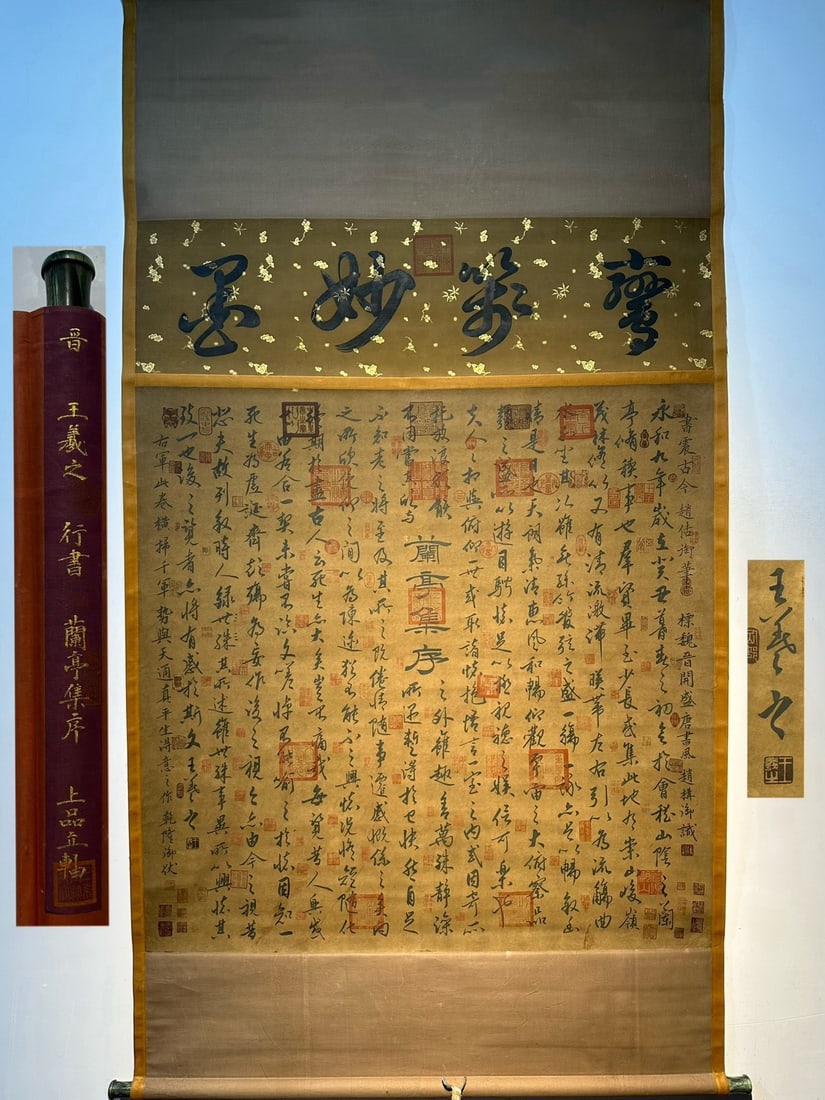 鸞箋妙墨
書震古今 趙佶御筆 標魏晉開盛唐書風 趙構御識
永和九年歲在癸丑暮春之初會於會稽山陰之蘭
亭脩稧事也羣賢畢至少長咸集此地有崇山峻嶺
茂林脩竹又有清流激湍暎帶左右引以為流觴曲
水列坐其次雖無絲竹管弦之盛一觴一詠亦足以暢敘幽
情是日也天朗氣清惠風和暢仰觀宇宙之大俯察品
類之盛所以游目騁懷足以極視聽之娛信可樂也
夫人之相與俯仰一世或取諸懷抱悟言一室之內或因寄所
託放浪形骸
之外雖趣舍萬殊靜躁
不同當其欣於
所遇蹔得於己快然自足
蘭亭集序
不知老之將至及其所之既倦情隨事遷感慨係之矣向
之所欣俛仰之間以為陳迹猶不能不以之興懷況脩短隨化
終期於盡古人云死生亦大矣豈不痛哉每覽昔人興感
之由若合一契未嘗不臨文嗟悼不能喻之於懷固知一
死生為虛誕齊彭殤為妄作後之視今亦由今之視昔
悲夫故列敘時人錄其所述雖世殊事異所以興懷其
致一也後之覽者亦將有感於斯文 王羲之
右軍此卷橫掃千軍 勢與天通真平生得意之作 乾隆御伏
晉 王羲之 行書 蘭亭集序 上品立軸
王羲之